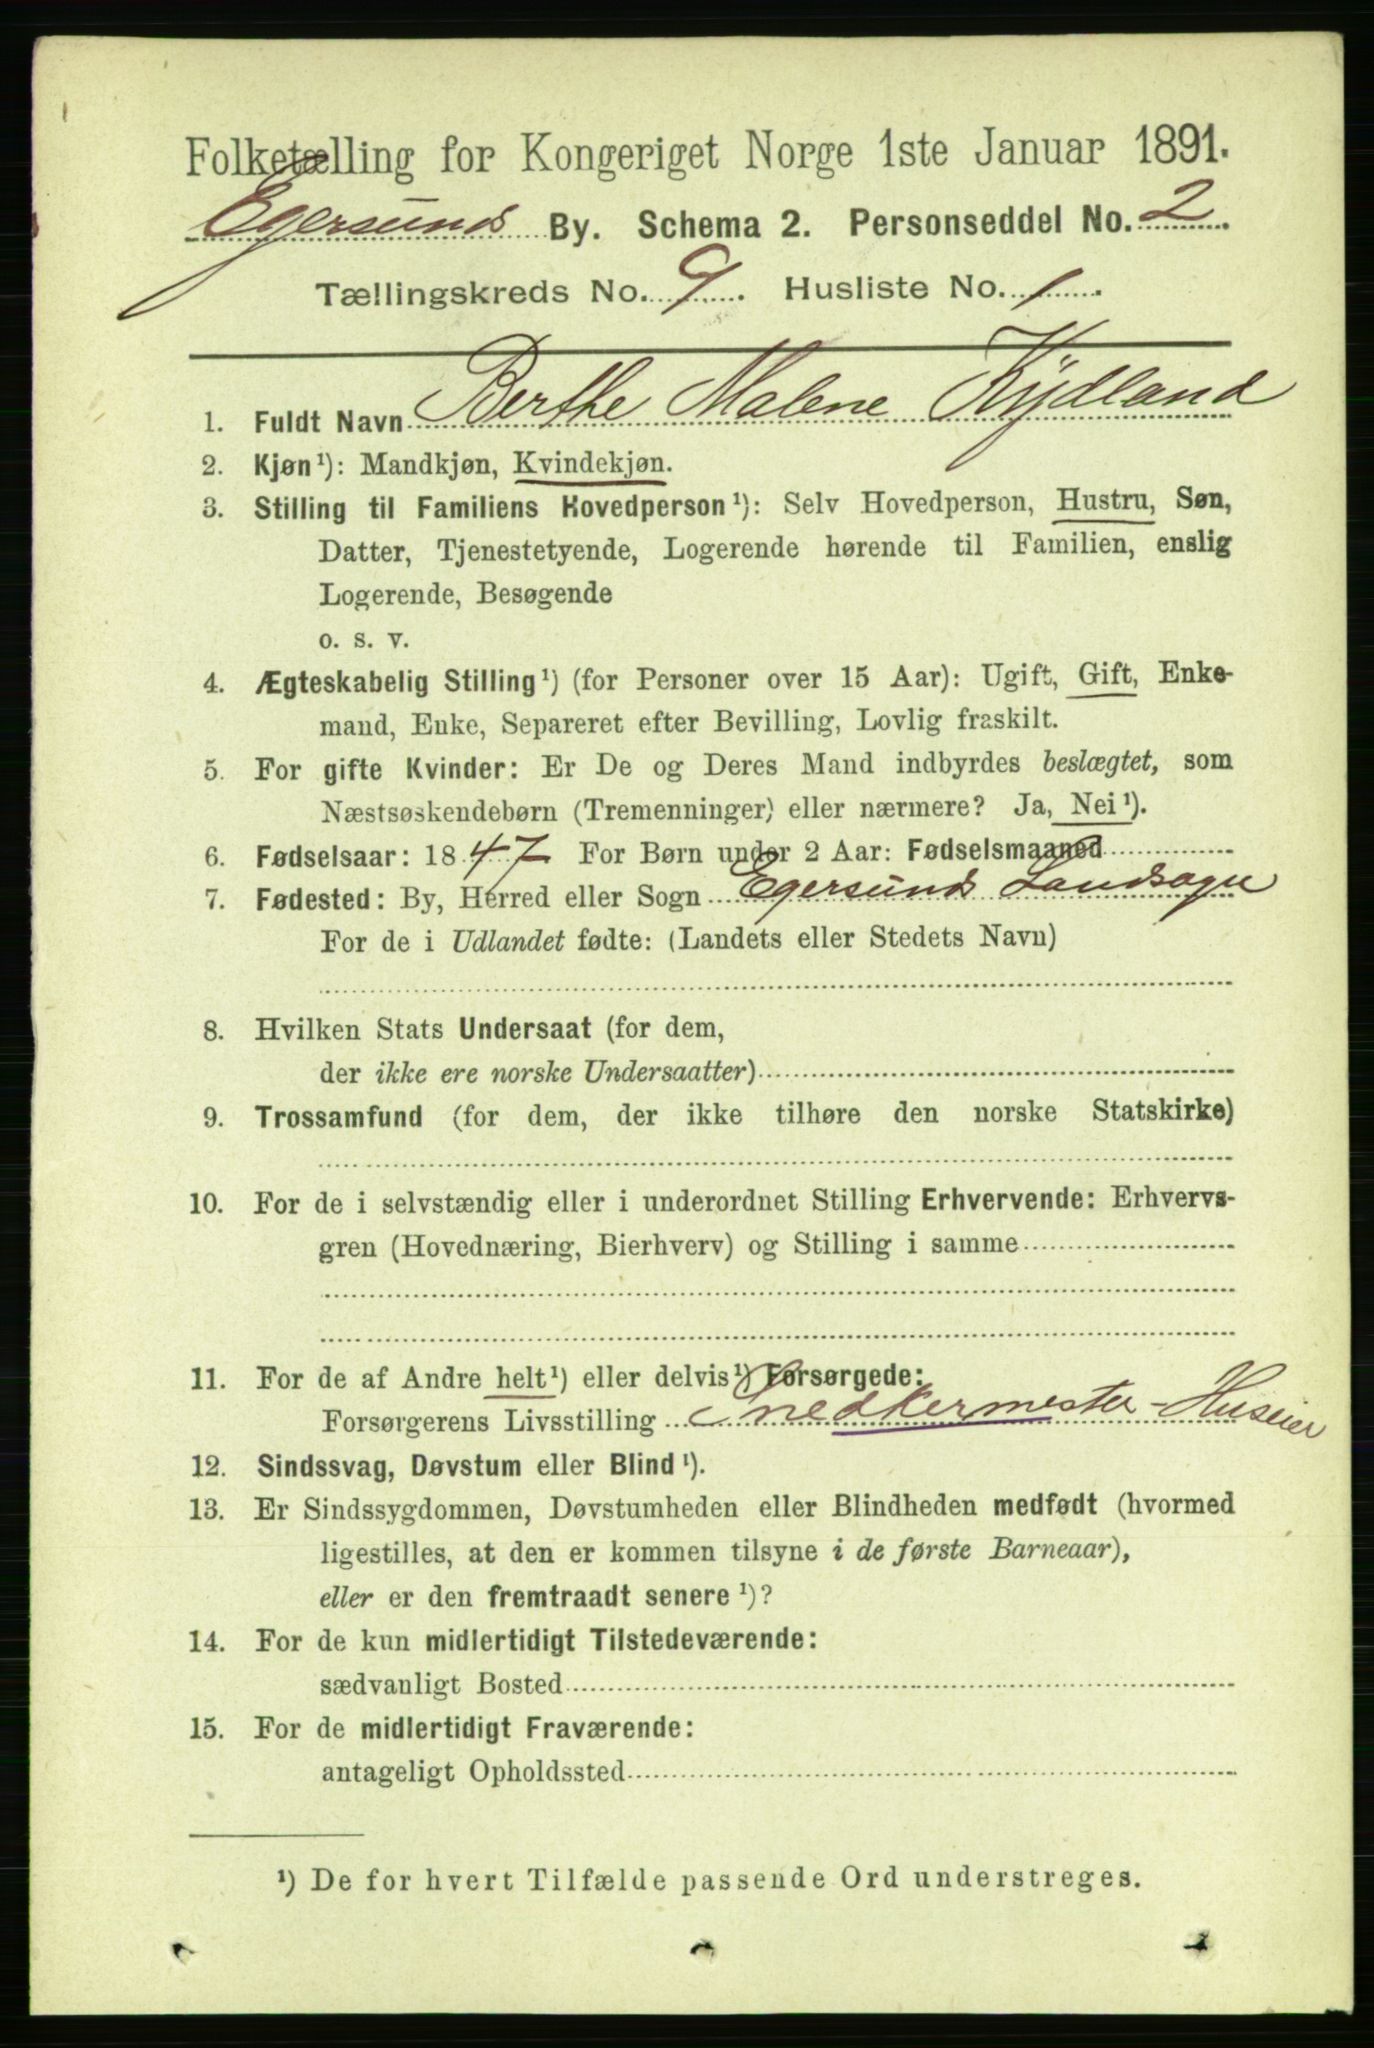 Folketælling for Kongeriget Norge 1ste Januar 1891.
Egersunds By. Schema 2. Personseddel No. 2
Tællingskreds No. 9. Husliste No. 1
1. Fuldt Navn Berthe Malene Kydland
2. Kjøn¹): Mandkjøn, Kvindekjøn.
3. Stilling til Familiens Hovedperson¹): Selv Hovedperson, Hustru, Søn,
Datter, Tjenestetyende, Logerende hørende til Familien, enslig
Logerende, Besøgende
o. s. v.
4. Ægteskabelig Stilling¹) (for Personer over 15 Aar): Ugift, Gift, Enke-
mand, Enke, Separeret efter Bevilling, Lovlig fraskilt.
5. For gifte Kvinder: Er De og Deres Mand indbyrdes beslægtet, som
Næstsøskendebørn (Tremenninger) eller nærmere? Ja, Nei¹).
6. Fødselsaar: 1847 For Børn under 2 Aar: Fødselsmaaned
7. Fødested: By, Herred eller Sogn Egersunds Landsogn
For de i Udlandet fødte: (Landets eller Stedets Navn)
8. Hvilken Stats Undersaat (for dem,
der ikke ere norske Undersaatter)
9. Trossamfund (for dem, der ikke tilhøre den norske Statskirke)
10. For de i selvstændig eller i underordnet Stilling Erhvervende: Erhvervs-
gren (Hovednæring, Bierhverv) og Stilling i samme
11. For de af Andre helt¹) eller delvis¹) Forsørgede:
Forsørgerens Livsstilling Snedkermester - Huseier
12. Sindssvag, Døvstum eller Blind¹).
13. Er Sindssygdommen, Døvstumheden eller Blindheden medfødt (hvormed
ligestilles, at den er kommen tilsyne i de første Barneaar),
eller er den fremtraadt senere¹)?
14. For de kun midlertidigt Tilstedeværende:
sædvanligt Bosted
15. For de midlertidigt Fraværende:
antageligt Opholdssted
¹) De for hvert Tilfælde passende Ord understreges.